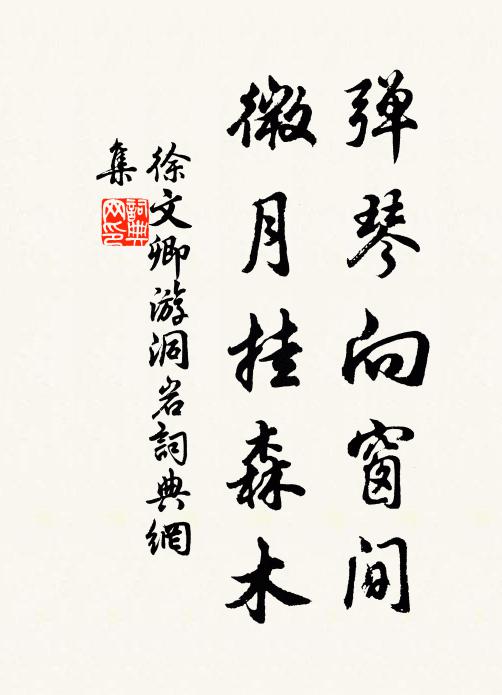 弹琴向窗间
微月挂森木
徐文卿游洞岩詞典網
集
詞典网印